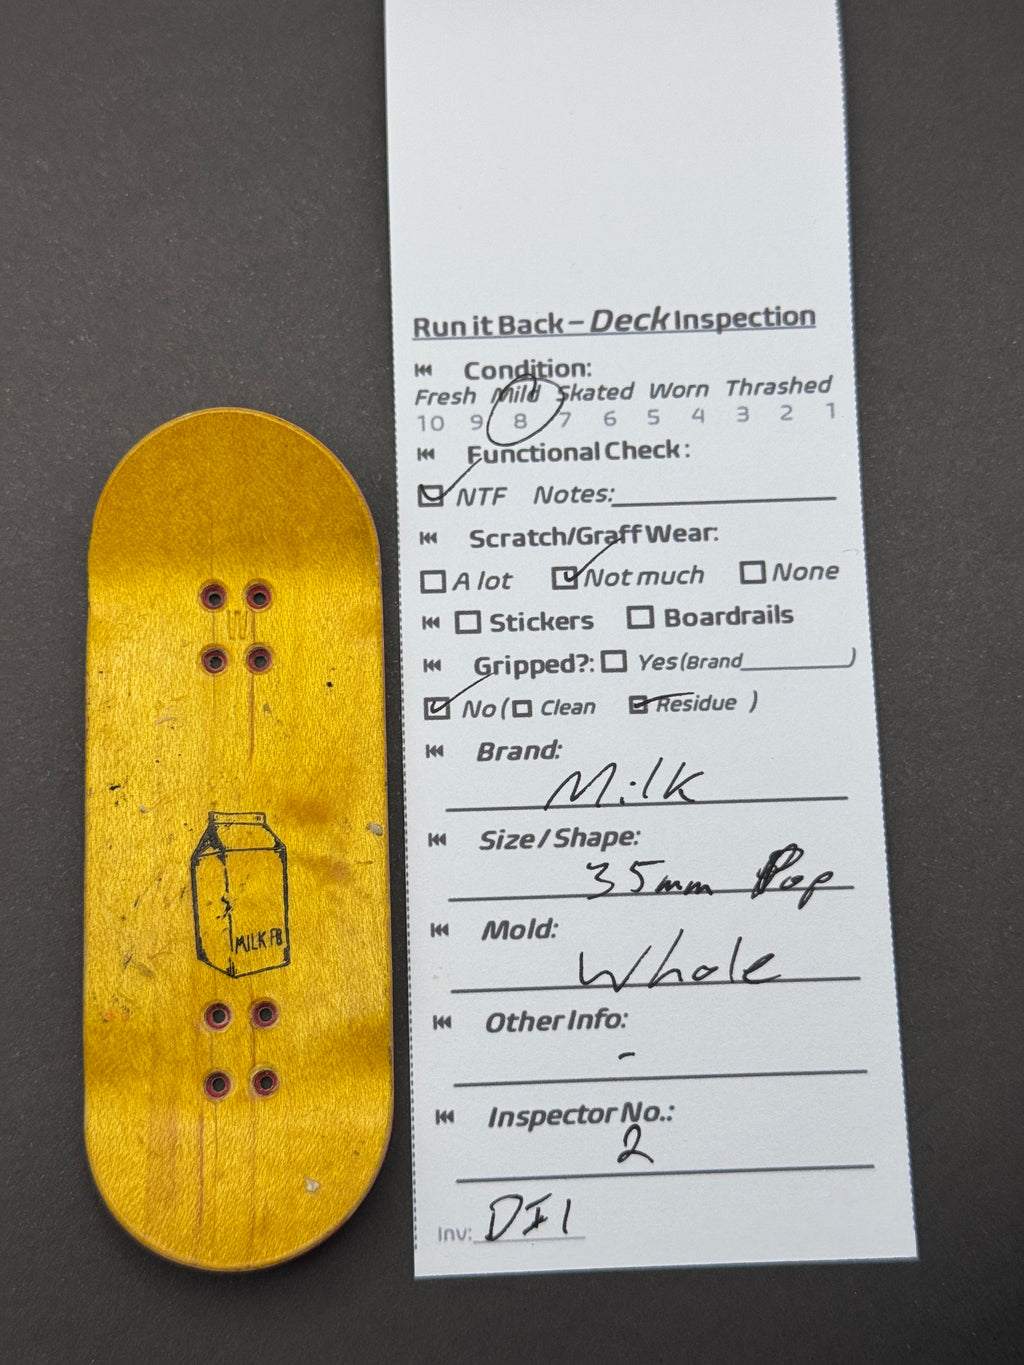 Run it Back – Deck Inspection
Condition:
Fresh Mild Skated Worn Thrashed
10 9 8 7 6 5 4 3 2 1
Functional Check:
NTF Notes:
Scratch/Graff Wear:
A lot Not much None
Stickers Boardrails
Gripped?: Yes (Brand )
No ( Clean Residue )
Brand:
Milk
Size / Shape:
35mm Pop
Mold:
Whole
Other Info:
-
Inspector No.:
2
Inv: DI1
MILK FB